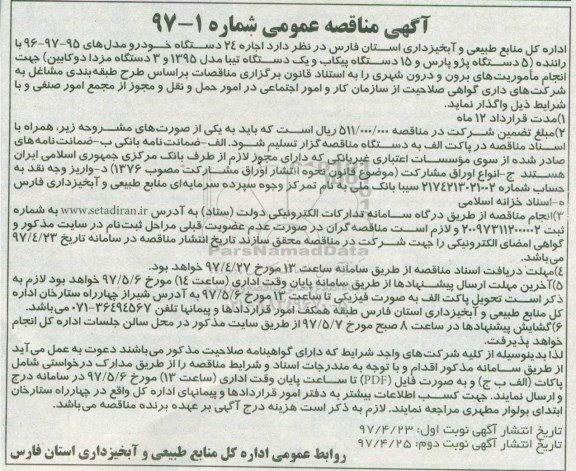 آگهی مناقصه عمومی شماره ۱-۹۷
اداره کل منابع طبیعی و آبخیزداری استان فارس در نظر دارد اجاره ۲۴ دستگاه خودرو مدل‌های ۹۵-۹۶-۹۷ با
راننده (۵ دستگاه پژو پارس و ۱۵ دستگاه پیکاب و یک دستگاه تیبا مدل ۱۳۹۵ و ۳ دستگاه مزدا دوکابین) جهت
انجام مأموریت‌های برون و درون شهری را به استناد قانون برگزاری مناقصات براساس طرح طبقه‌بندی مشاغل به
شرکت‌های داری گواهی صلاحیت از سازمان کار و امور اجتماعی در امور حمل و نقل و مجوز از مجمع امور صنفی و با
شرایط ذیل واگذار نماید.
۱)مدت قرارداد ۱۲ ماه
۲)مبلغ تضمین شرکت در مناقصه ۵۱۱/۰۰۰/۰۰۰ ریال است که باید به یکی از صورت‌های مشروحه زیر، همراه با
اسناد مناقصه در پاکت الف به دستگاه مناقصه گزار تسلیم شود. الف-ضمانت‌نامه بانکی ب-ضمانت‌نامه‌های
صادر شده از سوی مؤسسات اعتباری غیربانکی که دارای مجوز لازم از طرف بانک مرکزی جمهوری اسلامی ایران
هستند ج-انواع اوراق مشارکت (موضوع قانون نحوه انتشار اوراق مشارکت مصوب ۱۳۷۶) د-واریز وجه نقد به
حساب شماره ۲۱۷۴۲۱۳۰۲۱۰۰۲ سیبا بانک ملی به نام تمرکز وجوه سپرده سرمایه‌ای منابع طبیعی و آبخیزداری فارس
ه-اسناد خزانه اسلامی
۳)انجام مناقصه از طریق درگاه سامانه تدارکات الکترونیکی دولت (ستاد) به آدرس www.setadiran.ir به شماره
ثبت ۲۰۰۹۷۳۱۱۲۰۰۰۰۰۲ و لازم است مناقصه گران در صورت عدم عضویت قبلی مراحل ثبت‌نام در سایت مذکور و
گواهی امضای الکترونیکی را جهت شرکت در مناقصه محقق سازند تاریخ انتشار مناقصه در سامانه تاریخ ۹۷/۴/۲۳
می‌باشد.
۴)مهلت دریافت اسناد مناقصه از طریق سامانه ساعت ۱۳ مورخ ۹۷/۴/۲۷ خواهد بود.
۵)آخرین مهلت ارسال پیشنهادها از طریق سامانه پایان وقت اداری (ساعت ۱۴) مورخ ۹۷/۵/۶ خواهد بود لازم به
ذکر است تحویل پاکت الف به صورت فیزیکی تا ساعت ۱۳ مورخ ۹۷/۵/۶ به آدرس شیراز چهارراه ستارخان اداره
کل منابع طبیعی و آبخیزداری استان فارس طبقه همکف امور قراردادها و پیمانها تلفن ۳۶۴۹۴۵۶۷-۰۷۱ می‌باشد.
۶)گشایش پیشنهادها در ساعت ۸ صبح مورخ ۹۷/۵/۷ از طریق سایت مذکور در محل سالن جلسات اداره کل انجام
خواهد پذیرفت.
لذا بدینوسیله از کلیه شرکت‌های واجد شرایط که دارای گواهینامه صلاحیت مذکور می‌باشند دعوت به عمل می‌آید
از طریق سامانه مذکور اقدام و با توجه به مندرجات اسناد و شرایط مناقصه را از طریق مدارک درخواستی شامل
پاکات (الف ب ج) و به صورت فایل (PDF) تا ساعت پایان وقت اداری (ساعت ۱۳) مورخ ۹۷/۵/۶ در سامانه درج
و ارسال نمایند. جهت کسب اطلاعات بیشتر به دفتر امور قراردادها و پیمانهای اداره کل واقع در چهارراه ستارخان
ابتدای بولوار مطهری مراجعه نمایند. لازم به ذکر است هزینه درج آگهی بر عهده برنده مناقصه می‌باشد.
تاریخ انتشار آگهی نوبت اول: ۹۷/۴/۲۳
تاریخ انتشار آگهی نوبت دوم: ۹۷/۴/۲۵
روابط عمومی اداره کل منابع طبیعی و آبخیزداری استان فارس
ParsNamadData